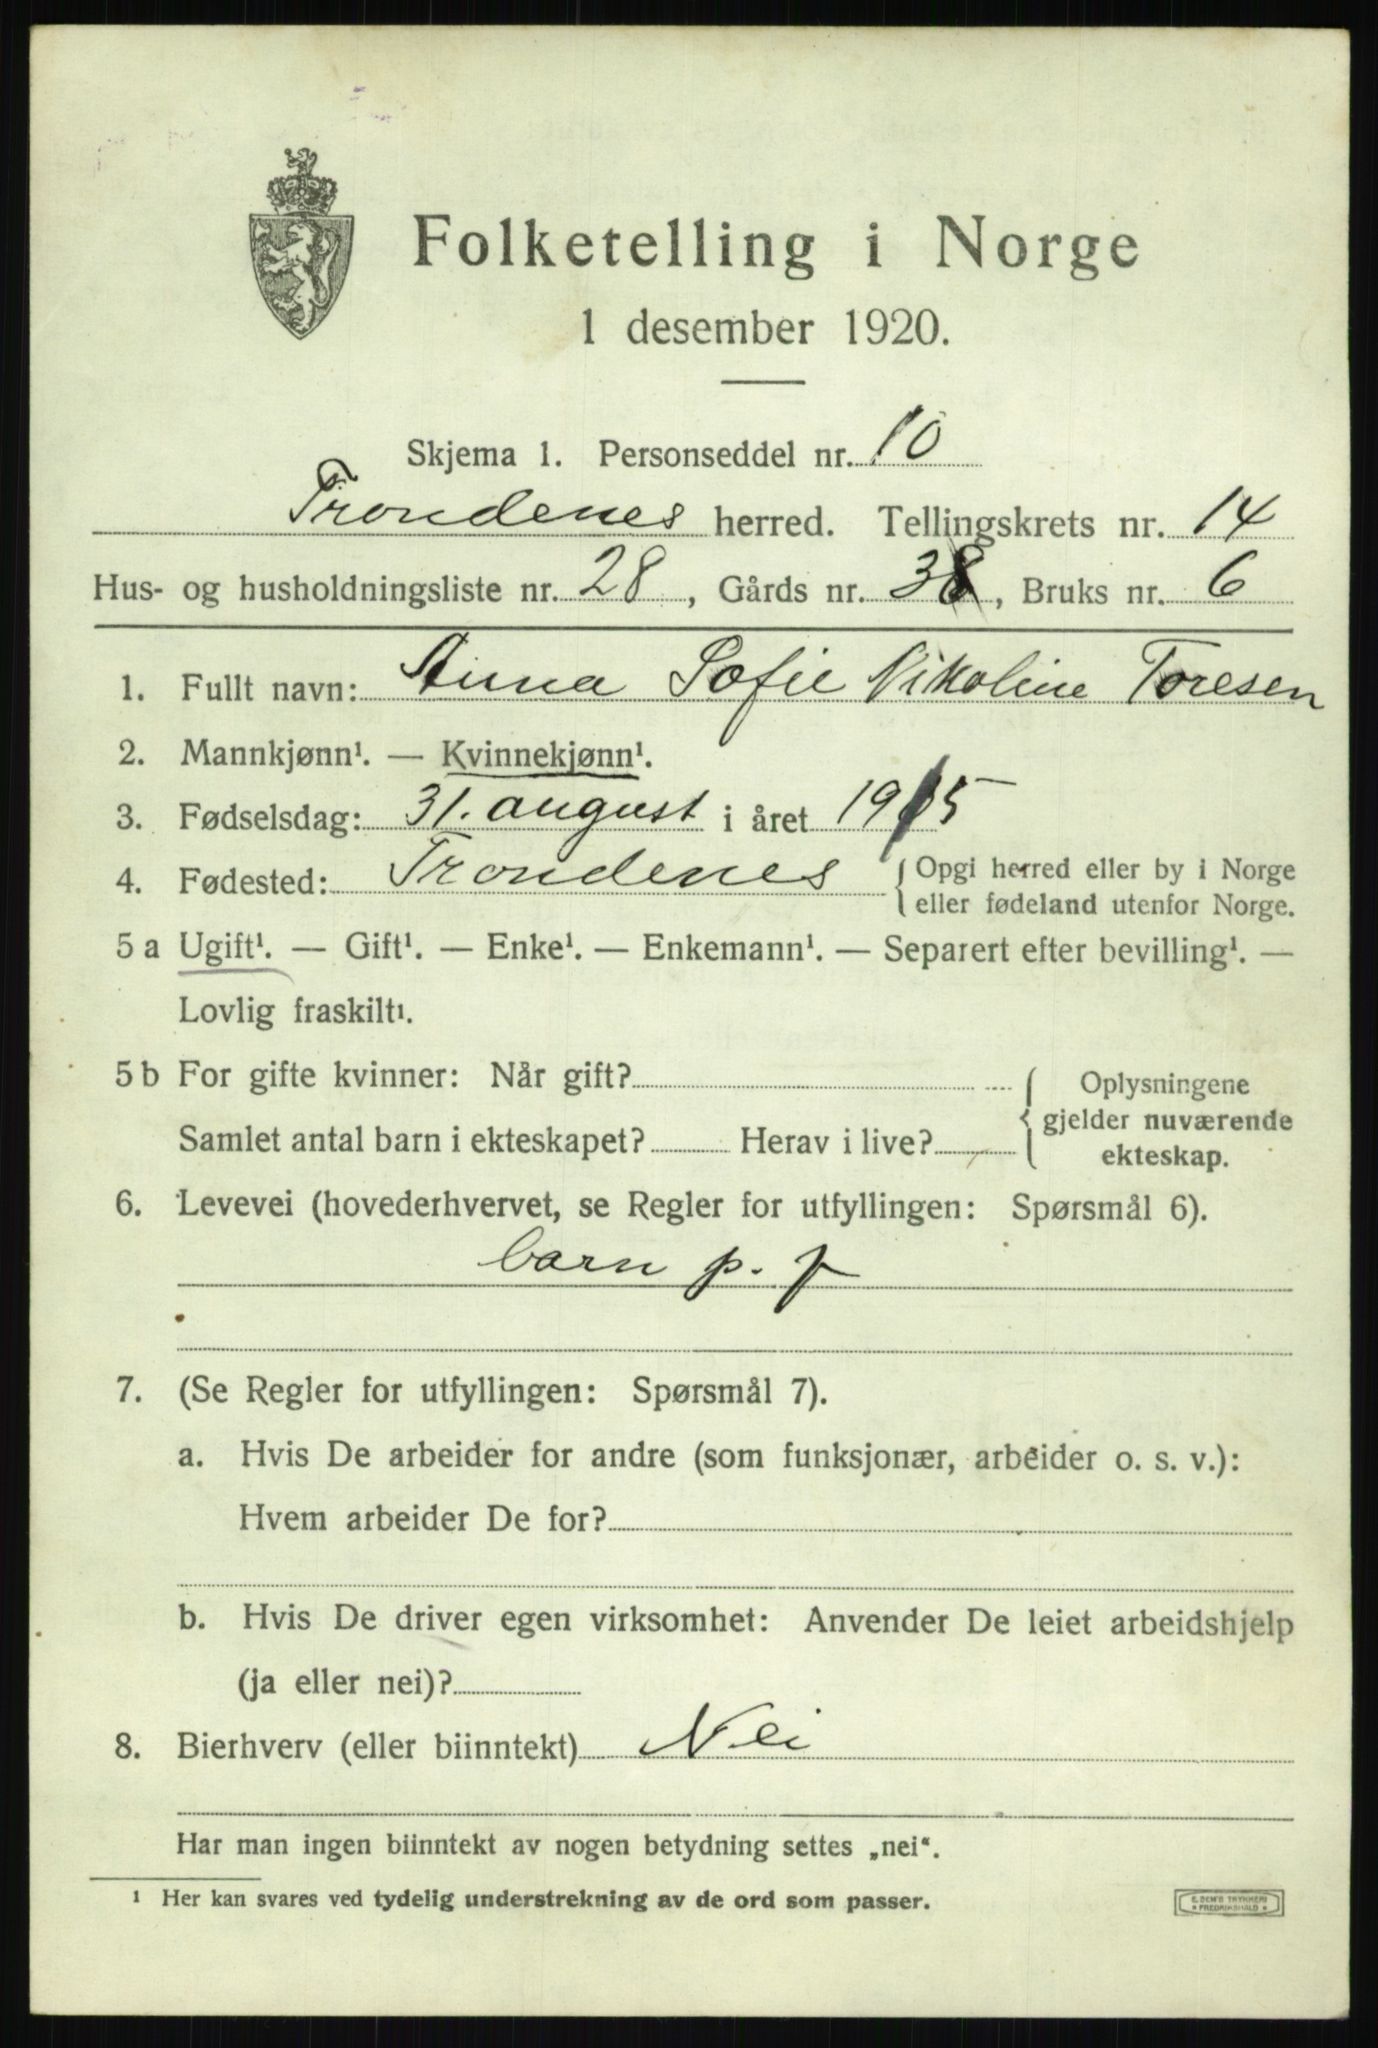 Folketelling i Norge
1 desember 1920.
Skjema 1. Personseddel nr. 10
Trondenes herred. Tellingskrets nr. 14
Hus- og husholdningsliste nr. 28, Gårds nr. 38, Bruks nr. 6
1. Fullt navn: Anna Sofie Nikoline Toresen
2. Mannkjønn¹. — Kvinnekjønn¹.
3. Fødselsdag: 31. august i året 1915
4. Fødested: Trondenes { Opgi herred eller by i Norge
eller fødeland utenfor Norge.
5 a Ugift¹. — Gift¹. — Enke¹. — Enkemann¹. — Separert efter bevilling¹. —
Lovlig fraskilt¹.
5 b For gifte kvinner: Når gift? { Oplysningene
gjelder nuværende
Samlet antal barn i ekteskapet? Herav i live? ekteskap.
6. Levevei (hovederhvervet, se Regler for utfyllingen: Spørsmål 6).
barn p. f
7. (Se Regler for utfyllingen: Spørsmål 7).
a. Hvis De arbeider for andre (som funksjonær, arbeider o. s. v.):
Hvem arbeider De for?
b. Hvis De driver egen virksomhet: Anvender De leiet arbeidshjelp
(ja eller nei)?
8. Bierhverv (eller biinntekt) Nei
Har man ingen biinntekt av nogen betydning settes „nei“.
¹ Her kan svares ved tydelig understrekning av de ord som passer.
E. SEM'S TRYKKERI
* FREDRIKSHALD *